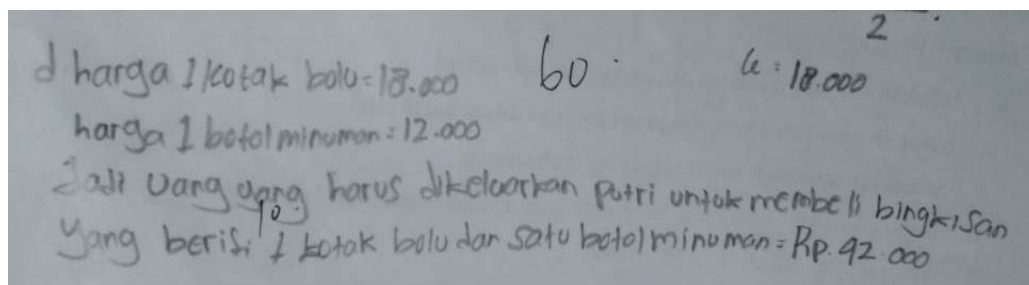 2
d harga 1 kotak bolu = 18.000 60 u = 18.000
harga 1 botol minuman = 12.000
Jadi uang yang harus dikeluarkan putri untuk membeli bingkisan
10
yang berisi 1 kotak bolu dan satu botol minuman = Rp. 42.000